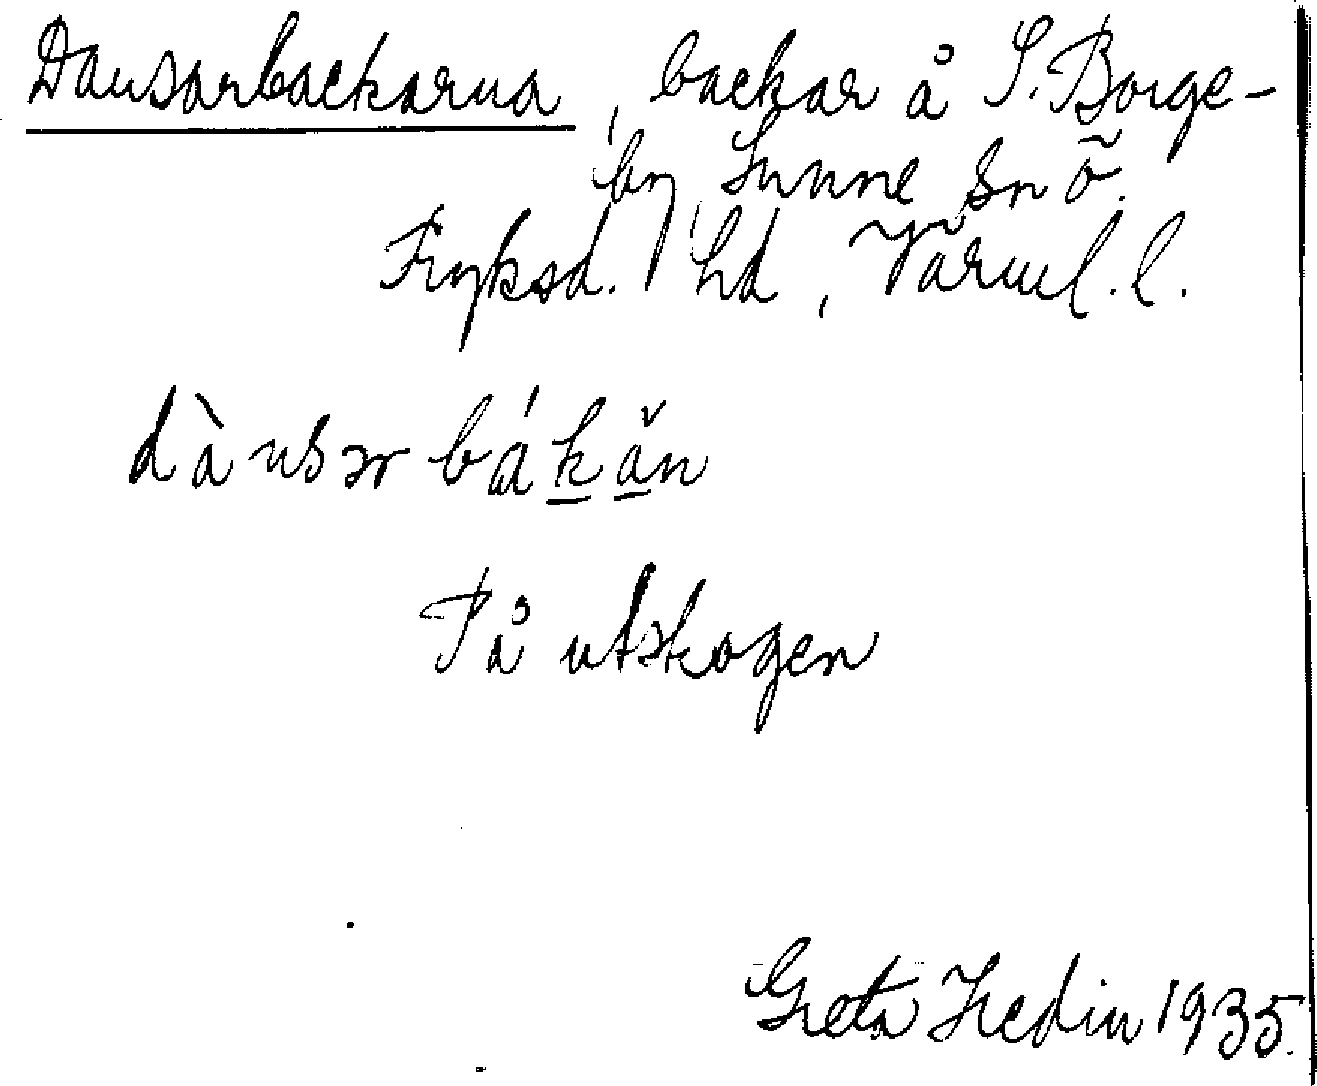 Dansarbackarna, backar å S. Borge-
by, Sunne sn ö.
Fryksd. hd, Värml. l.
dànsər bákăn
På utskogen
Greta Hedin 1935.